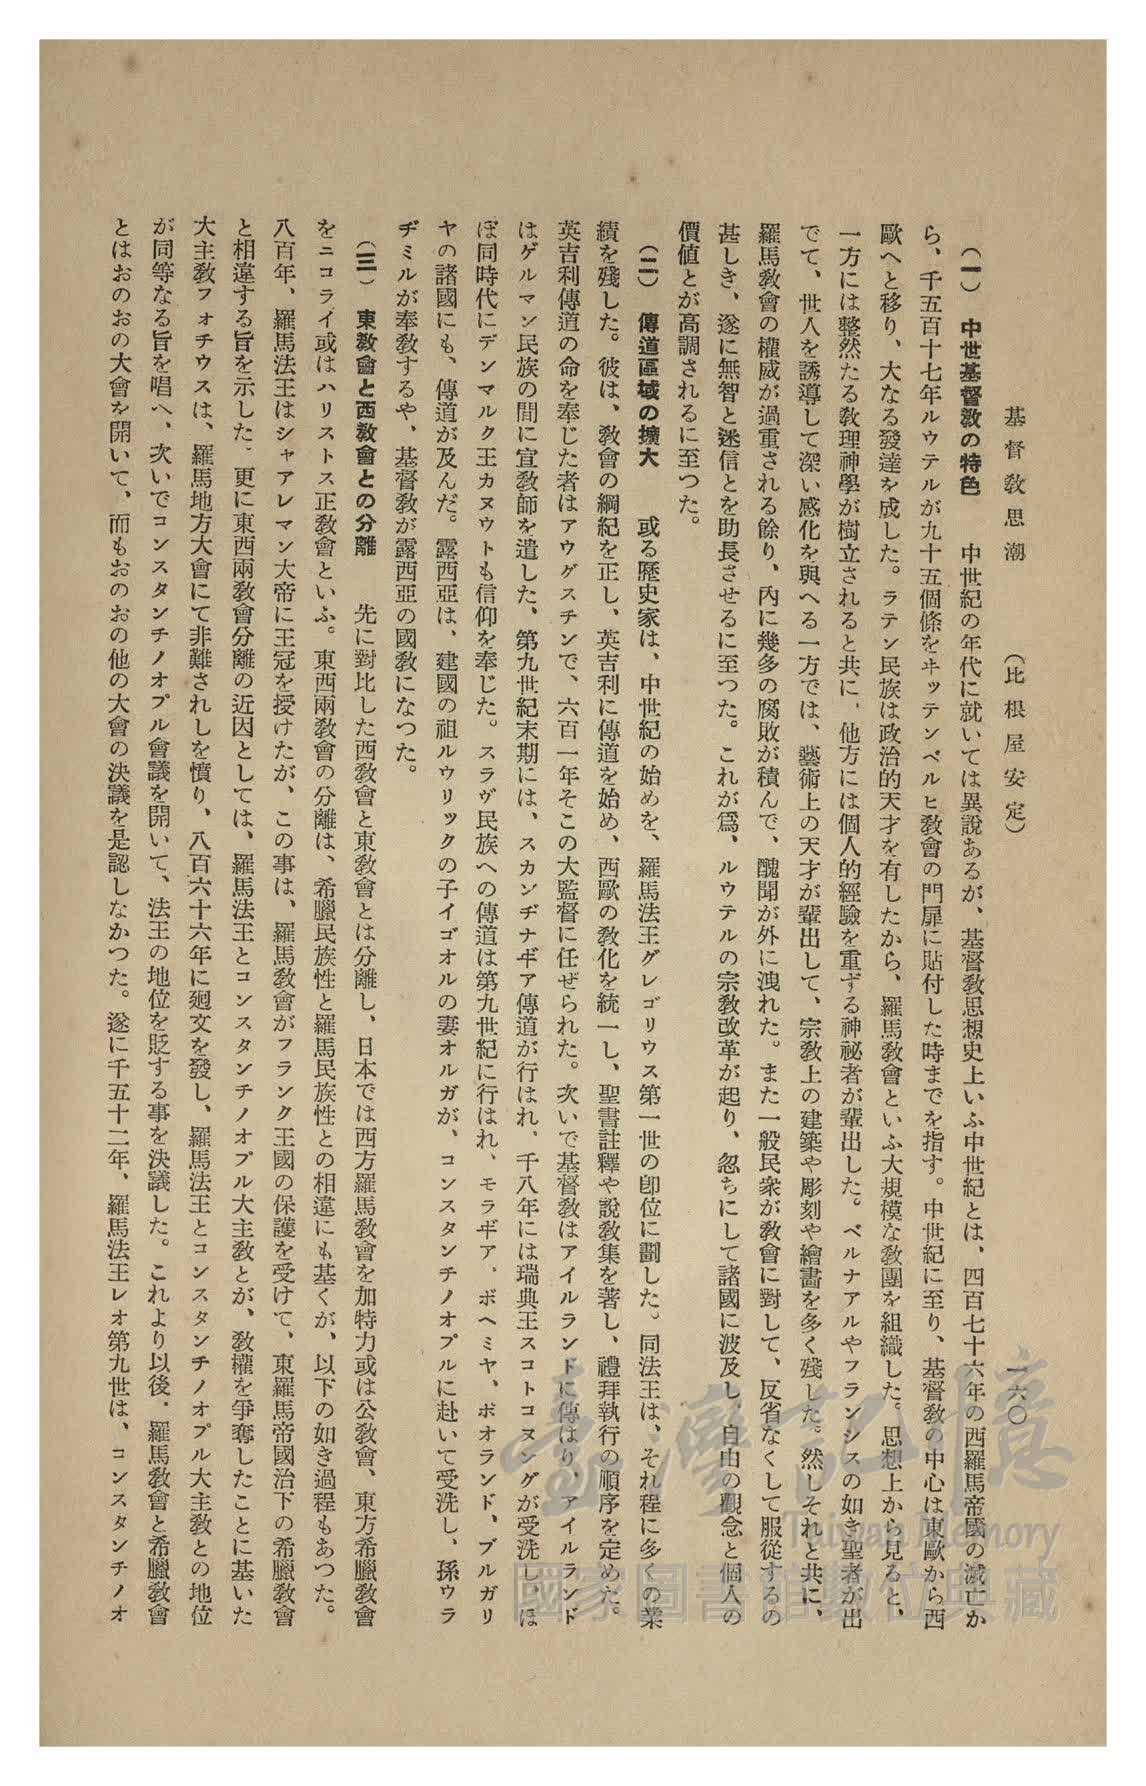 基督教思潮　（比根屋安定）　一六〇
（一）　中世基督教の特色　中世紀の年代に就いては異說あるが、基督教思想史上いふ中世紀とは、四百七十六年の西羅馬帝國の滅亡か
ら、千五百十七年ルウテルが九十五個條をヰッテンベルヒ教會の門扉に貼付した時までを指す。中世紀に至り、基督教の中心は東歐から西
歐へと移り、大なる發達を成した。ラテン民族は政治的天才を有したから、羅馬教會といふ大規模な教團を組織した。思想上から見ると、
一方には整然たる教理神學が樹立されると共に、他方には個人的經驗を重ずる神祕者が輩出した。ベルナアルやフランシスの如き聖者が出
でて、世人を誘導して深い感化を與へる一方では、藝術上の天才が輩出して、宗教上の建築や彫刻や繪畫を多く殘した。然しそれと共に、
羅馬教會の權威が過重される餘り、內に幾多の腐敗が積んで、醜聞が外に洩れた。また一般民衆が教會に對して、反省なくして服從するの
甚しき、遂に無智と迷信とを助長させるに至つた。これが爲、ルウテルの宗教改革が起り、忽ちにして諸國に波及し、自由の觀念と個人の
價値とが高調されるに至つた。
（二）　傳道區域の擴大　或る歷史家は、中世紀の始めを、羅馬法王グレゴリウス第一世の卽位に劃した。同法王は、それ程に多くの業
績を殘した。彼は、教會の綱紀を正し、英吉利に傳道を始め、西歐の教化を統一し、聖書註釋や說教集を著し、禮拜執行の順序を定めた。
英吉利傳道の命を奉じた者はアウグスチンで、六百一年そこの大監督に任ぜられた。次いで基督教はアイルランドに傳はり、アイルランド
はゲルマン民族の間に宣教師を遣した、第九世紀末期には、スカンヂナヰア傳道が行はれ、千八年には瑞典王スコトコヌングが受洗し、ほ
ぼ同時代にデンマルク王カヌウトも信仰を奉じた。スラヴ民族への傳道は第九世紀に行はれ、モラヰア、ボヘミヤ、ボオランド、ブルガリ
ヤの諸國にも、傳道が及んだ。露西亞は、建國の祖ルウリックの子イゴオルの妻オルガが、コンスタンチノオプルに赴いて受洗し、孫ウラ
ヂミルが奉教するや、基督教が露西亞の國教になつた。
（三）　東教會と西教會との分離　先に對比した西教會と東教會とは分離し、日本では西方羅馬教會を加特力或は公教會、東方希臘教會
をニコライ或はハリストス正教會といふ。東西兩教會の分離は、希臘民族性と羅馬民族性との相違にも基くが、以下の如き過程もあつた。
八百年、羅馬法王はシャアレマン大帝に王冠を授けたが、この事は、羅馬教會がフランク王國の保護を受けて、東羅馬帝國治下の希臘教會
と相違する旨を示した。更に東西兩教會分離の近因としては、羅馬法王とコンスタンチノオプル大主教とが、教權を爭奪したことに基いた
大主教フォチウスは、羅馬地方大會にて非難されしを憤り、八百六十六年に廻文を發し、羅馬法王とコンスタンチノオプル大主教との地位
が同等なる旨を唱へ、次いでコンスタンチノオプル會議を開いて、法王の地位を貶する事を決議した。これより以後、羅馬教會と希臘教會
とはおのおの大會を開いて、而もおのおの他の大會の決議を是認しなかつた。遂に千五十二年、羅馬法王レオ第九世は、コンスタンチノオ
臺灣記憶
Taiwan Memory
國家圖書館數位典藏